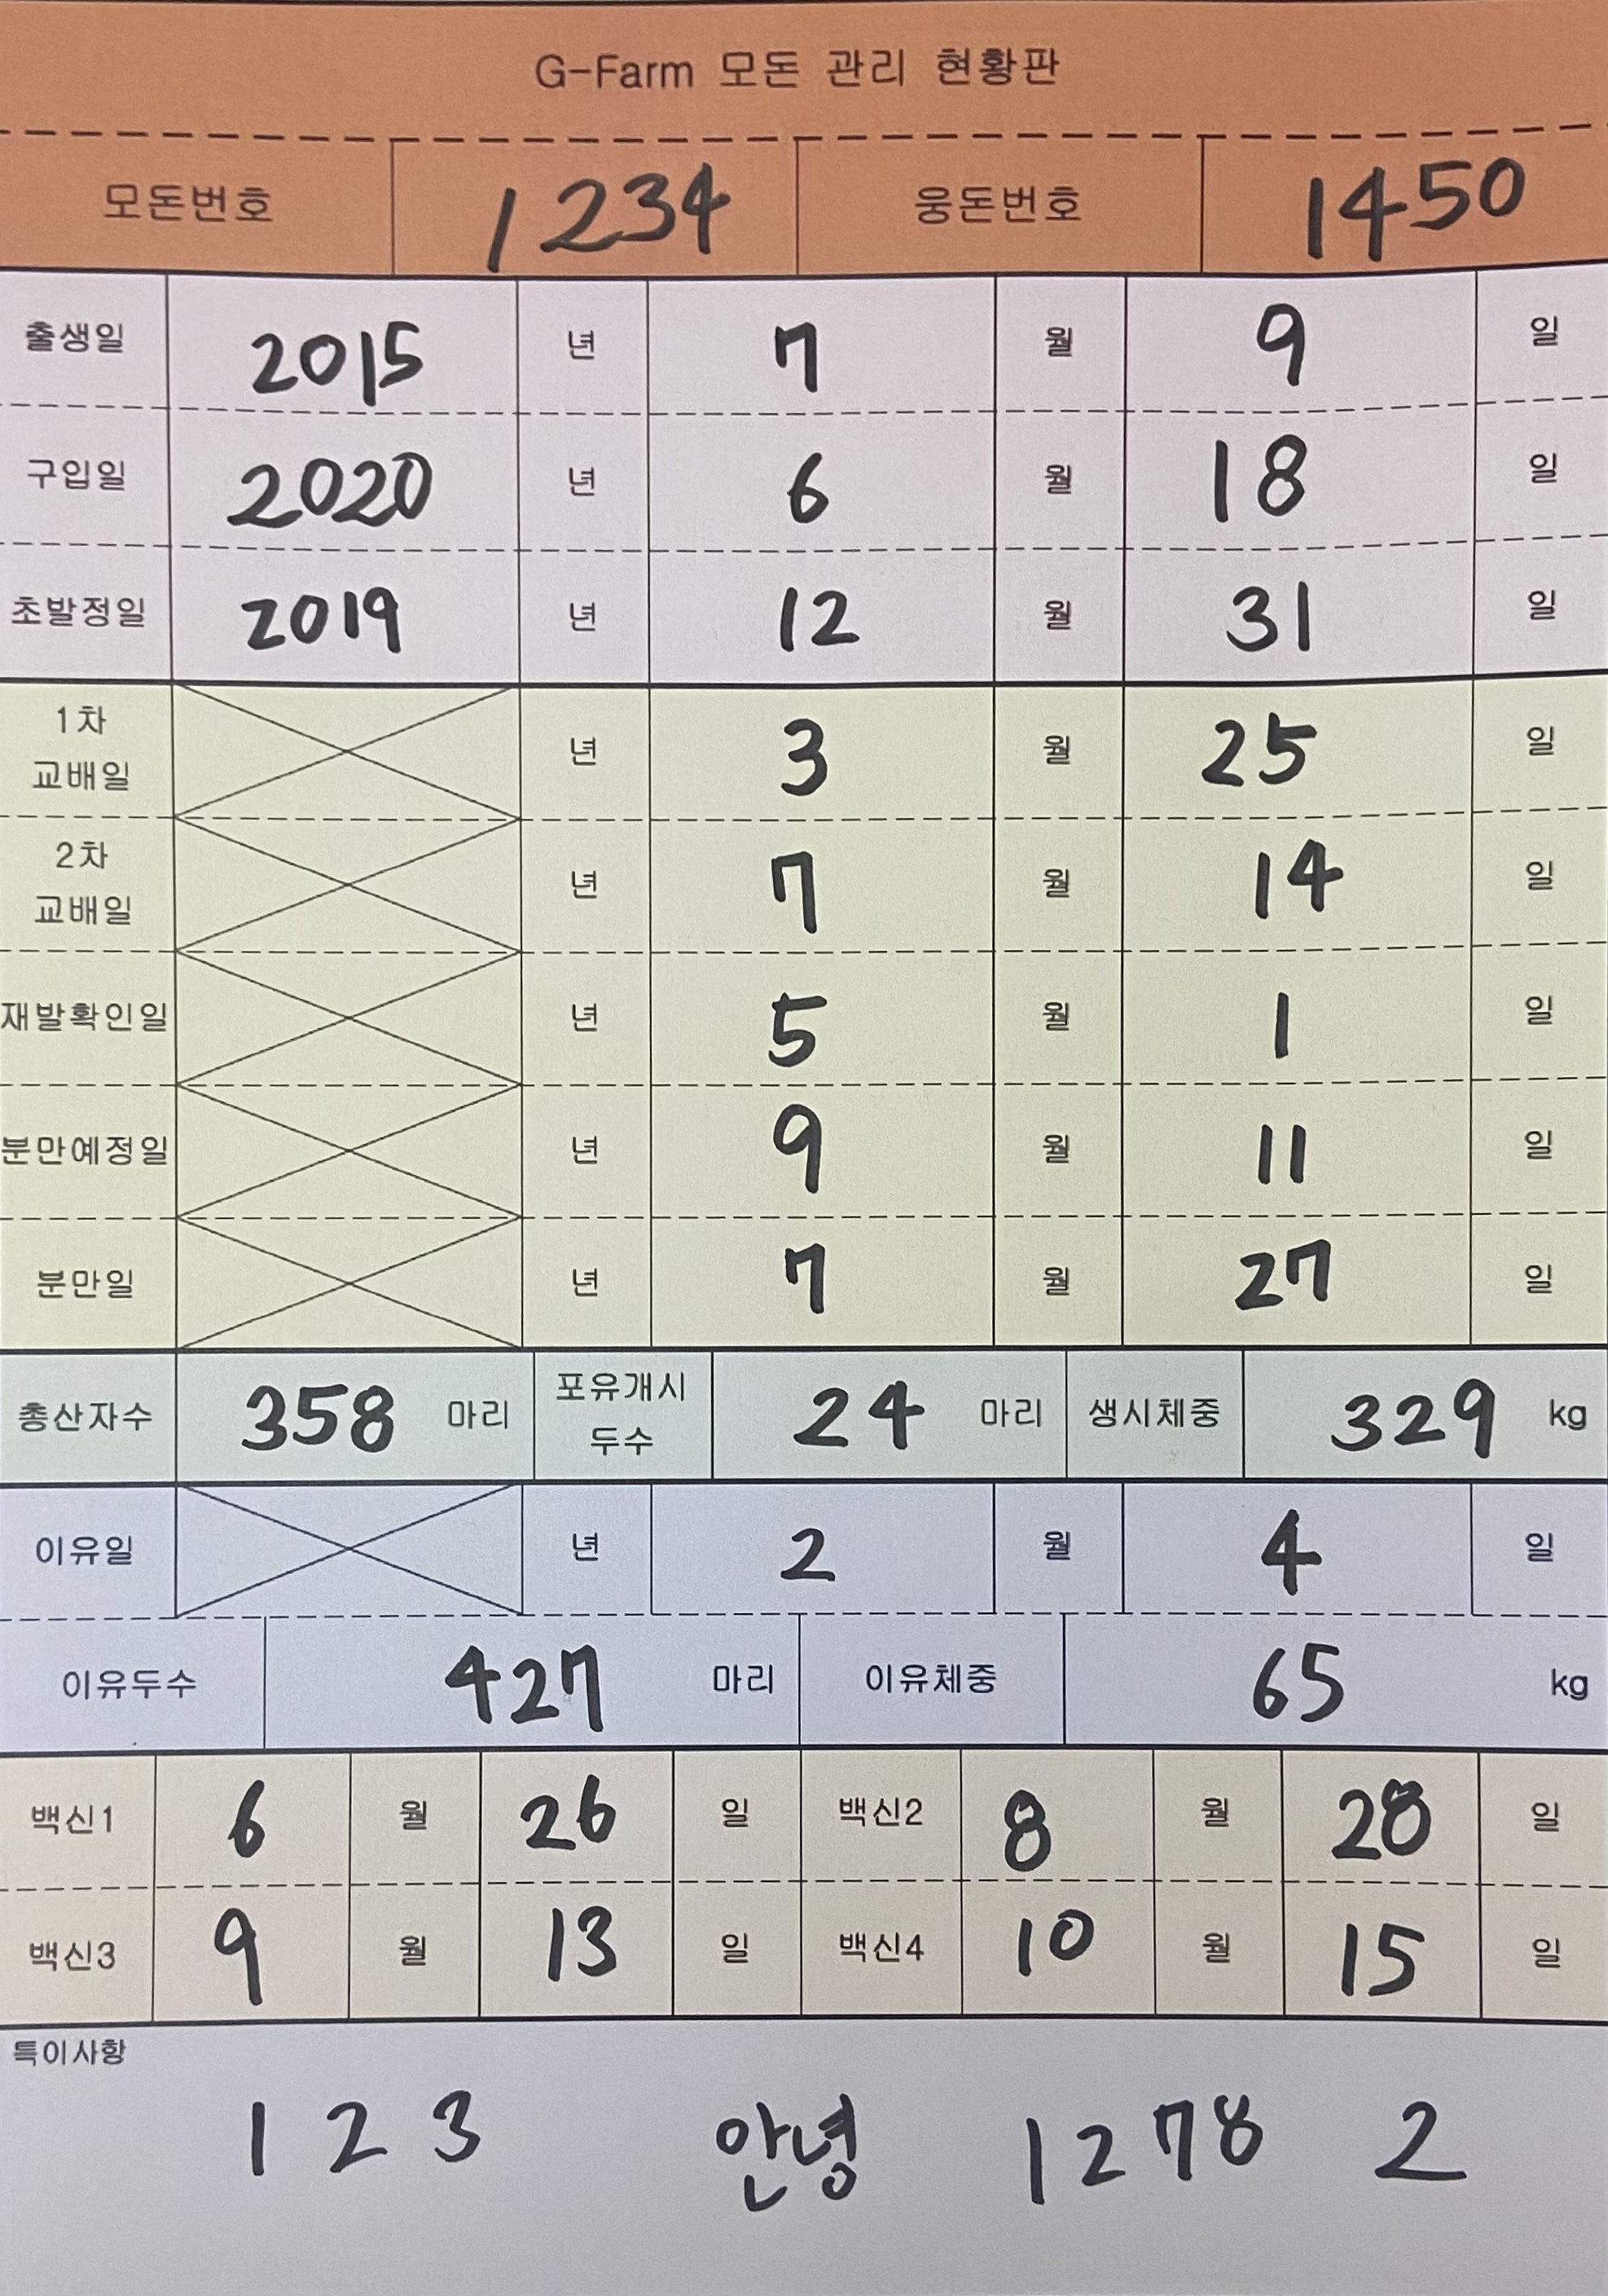 G-Farm 모돈 관리 현황판
모돈번호 1234 웅돈번호 1450
출생일 2015 년 7 월 9 일
구입일 2020 년 6 월 18 일
초발정일 2019 년 12 월 31 일
1차
교배일 년 3 월 25 일
2차
교배일 년 7 월 14 일
재발확인일 년 5 월 1 일
분만예정일 년 9 월 11 일
분만일 년 7 월 27 일
총산자수 358 마리 포유개시
두수 24 마리 생시체중 329 kg
이유일 년 2 월 4 일
이유두수 427 마리 이유체중 65 kg
백신1 6 월 26 일 백신2 8 월 28 일
백신3 9 월 13 일 백신4 10 월 15 일
특이사항
1 2 3 안녕 1278 2